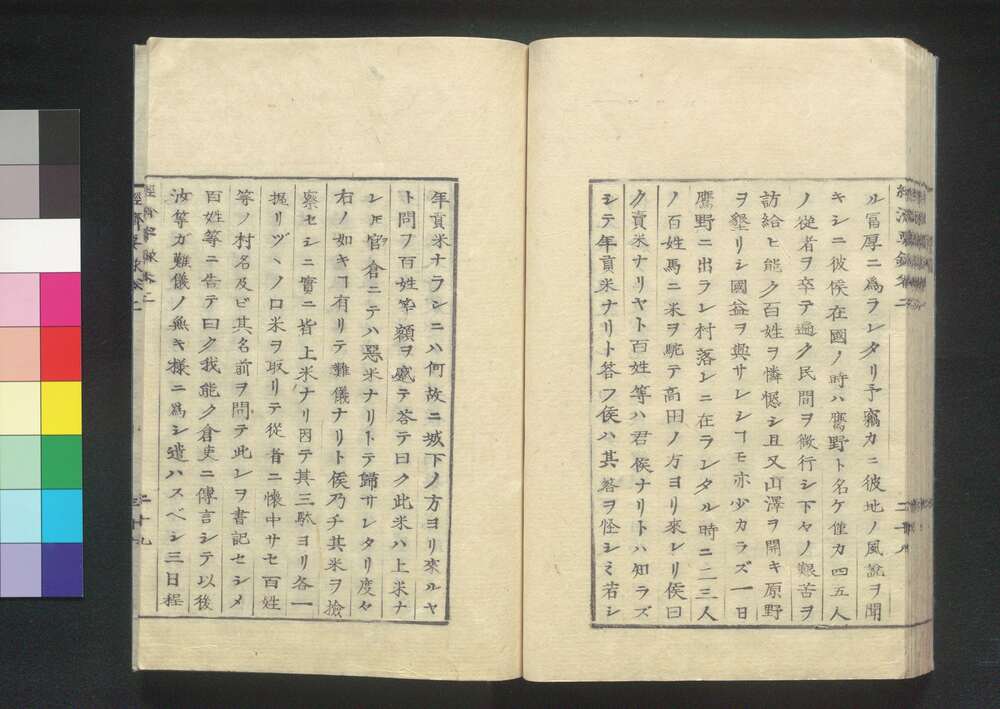 ル冨厚ニ爲ラレタリ予竊カニ彼地ノ風說ヲ聞
キシニ彼侯在國ノ時ハ鷹野ト名ケ僅カ四五人
ノ從者ヲ卒テ遍ク民間ヲ微行シ下々ノ艱苦ヲ
訪給ヒ能ク百姓ヲ憐愍シ且又山澤ヲ開キ原野
ヲ墾リシ國益ヲ興サレシヿモ亦少カラズ一日
鷹野ニ出ラレ村落レニ在ラレタル時ニ二三人
ノ百姓馬ニ米ヲ駝テ高田ノ方ヨリ來レリ侯曰
ク貢米ナリヤト百姓等ハ君侯ナリトハ知ラズ
シテ年貢米ナリト答フ侯ハ其答ヲ怪シミ若シ
年貢米ナランニハ何故ニ城下ノ方ヨリ來ルヤ
ト問フ百姓等額ヲ蹙テ答テ曰ク此米ハ上米ナ
レ𪜈官倉ニテハ惡米ナリトテ歸サレタリ度々
右ノ如キヿ有リテ難儀ナリト侯乃チ其米ヲ撿
察セシニ實ニ皆上米ナリ因テ其三駄ヨリ各一
握リヅヽノ口米ヲ取リテ從者ニ懷中サセ百姓
等ノ村名及ビ其名前ヲ問テ此レヲ書記セシメ
百姓等ニ告テ曰ク我能ク倉吏ニ傳言シテ以後
汝等ガ難儀ノ無キ樣ニ爲シ遣ハスベシ三日程